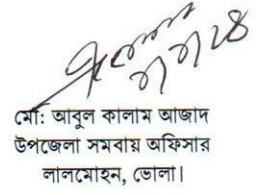 ৭/৭/২৪
মো: আবুল কালাম আজাদ
উপজেলা সমবায় অফিসার
লালমোহন, ভোলা।